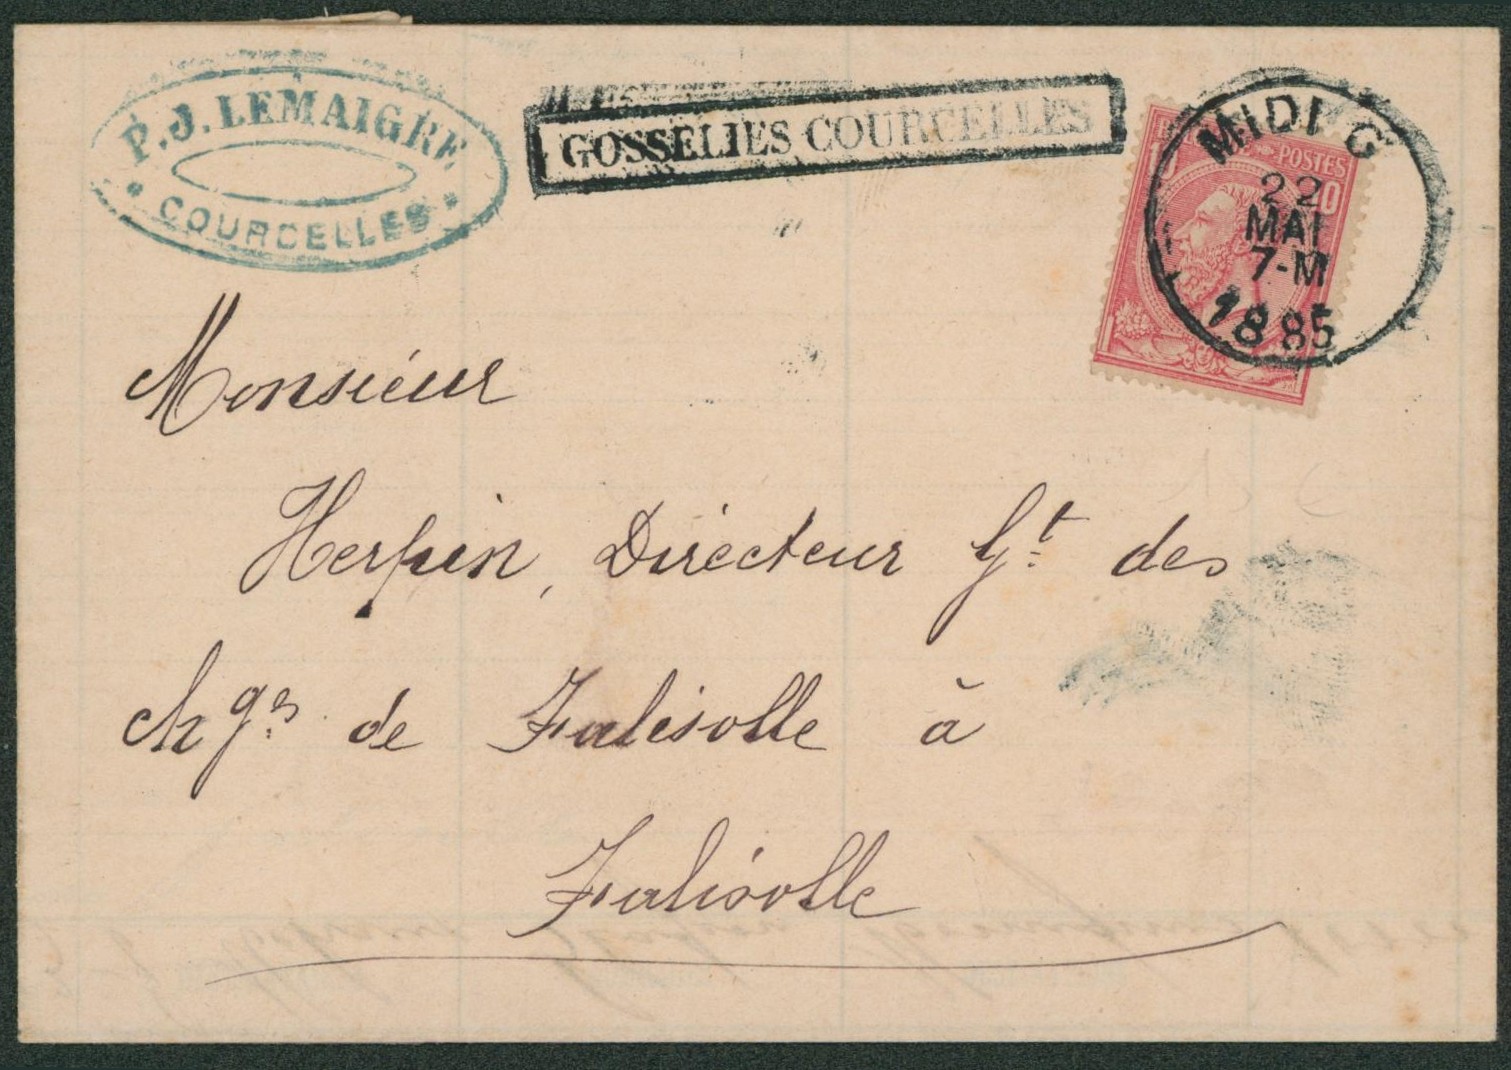 P.J. LEMAIGRE
* COURCELLES *
GOSSELIES COURCELLES
MIDI
22
MAI
7-M
1885
POSTES
10
Monsieur
Herpin, Directeur Gt. des
chges. de Falisolle à
Falisolle